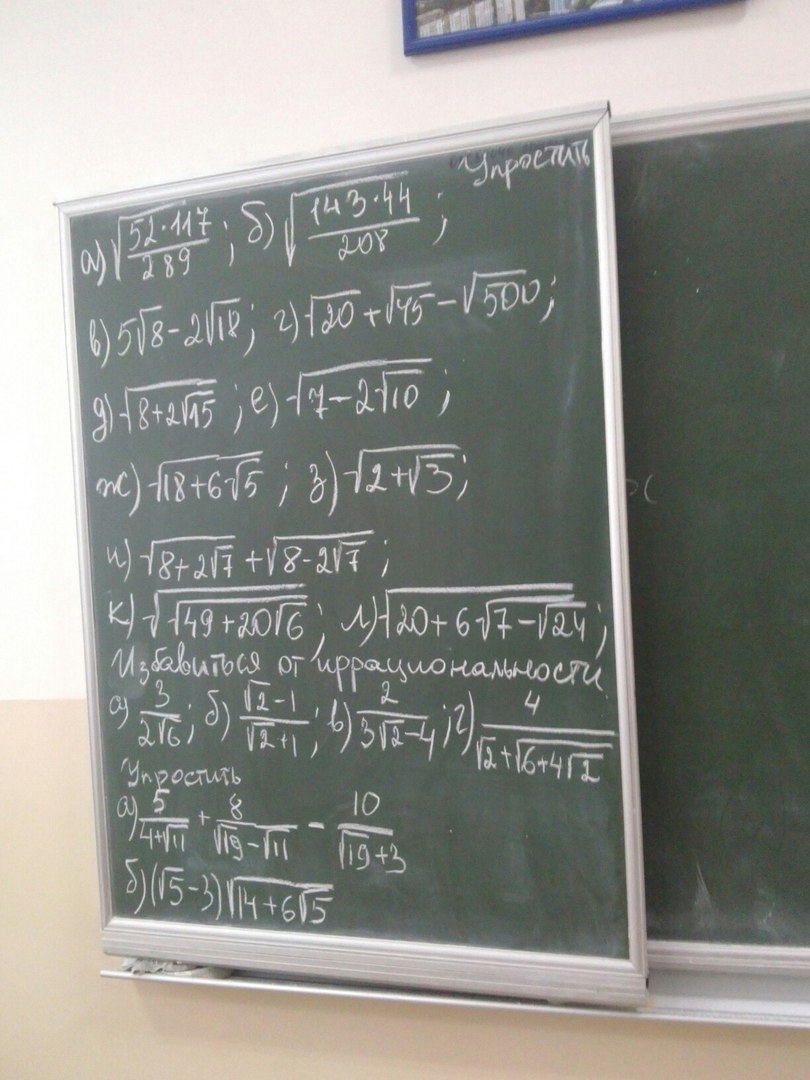 Упростить
а) √(52·117/289); б) √(143·44/208);
в) 5√8 - 2√18; г) √20 + √45 - √500;
д) √(8+2√15); е) √(7-2√10);
ж) √(18+6√5); з) √(2+√3);
и) √(8+2√7) + √(8-2√7);
к) √√(49+20√6); л) √(20+6√7-√24);
Избавиться от иррациональности
а) 3/(2√6); б) (√2-1)/(√2+1); в) 2/(3√2-4); г) 4/(√2+√(6+4√2))
Упростить
а) 5/(4+√11) + 8/(√19-√11) - 10/(√19+3)
б) (√5-3)√(14+6√5)